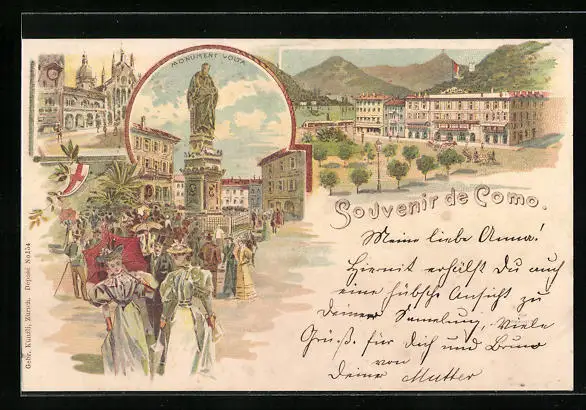 MONUMENT VOLTA
Souvenir de Como.
Meine liebe Anna!
Hiermit erhälst Du auch
eine hübsche Ansicht zu
Deiner Samelung, Viele
Grüße für dich und Bruno
von
Deiner Mutter
Gebr. Künzli, Zürich. Deposé No. 154